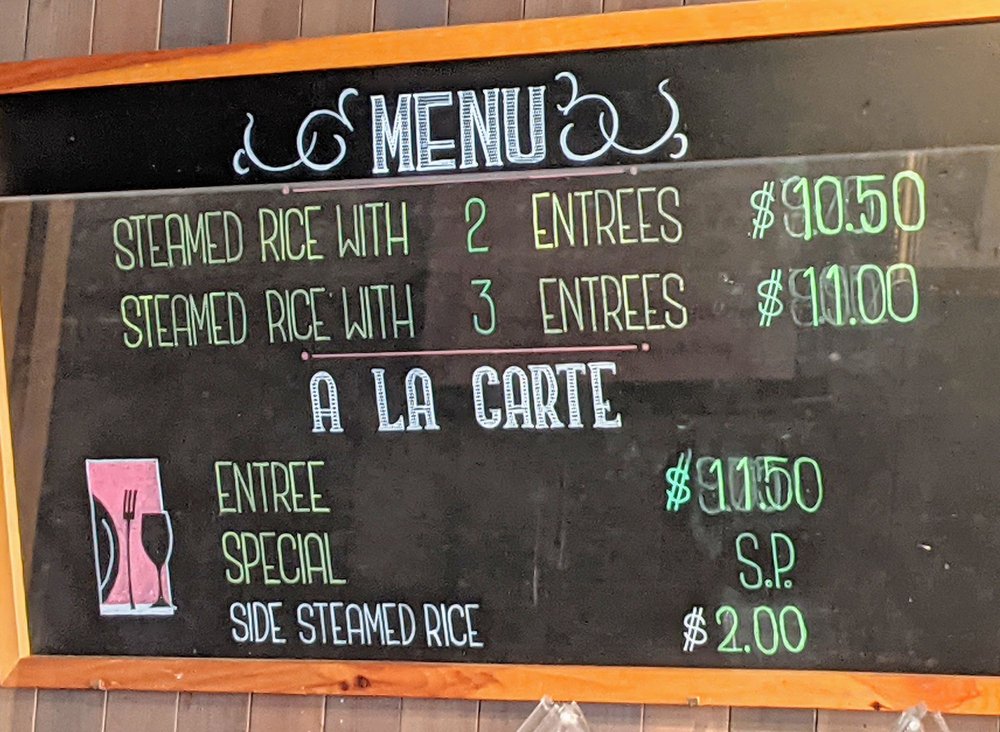 MENU
STEAMED RICE WITH 2 ENTREES $10.50
STEAMED RICE WITH 3 ENTREES $11.00
A LA CARTE
ENTREE $11.50
SPECIAL S.P.
SIDE STEAMED RICE $2.00